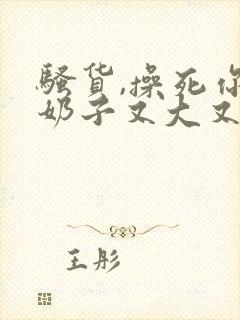 骚货,操死你
奶子又大又
王彤